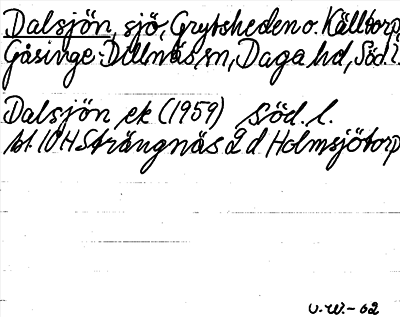 Dalsjön, sjö, Grytsheden o. Källtorp,
Gåsinge-Dillnäs sn, Daga hd, Söd. l.
Dalsjön ek (1959) Söd. l.
bl. 10 H Strängnäs 2 d Holmsjötorp
U.W.-62